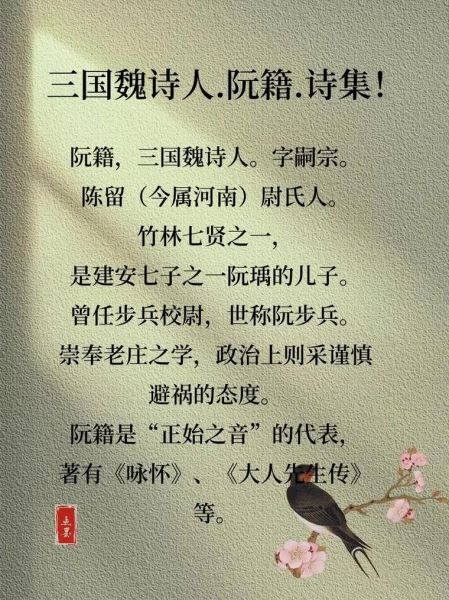 三国魏诗人.阮籍.诗集！
阮籍，三国魏诗人。字嗣宗。
陈留（今属河南）尉氏人。
竹林七贤之一，
是建安七子之一阮瑀的儿子。
曾任步兵校尉，世称阮步兵。
崇奉老庄之学，政治上则采谨慎
避祸的态度。
阮籍是“正始之音”的代表，
著有《咏怀》、《大人先生传》
等。